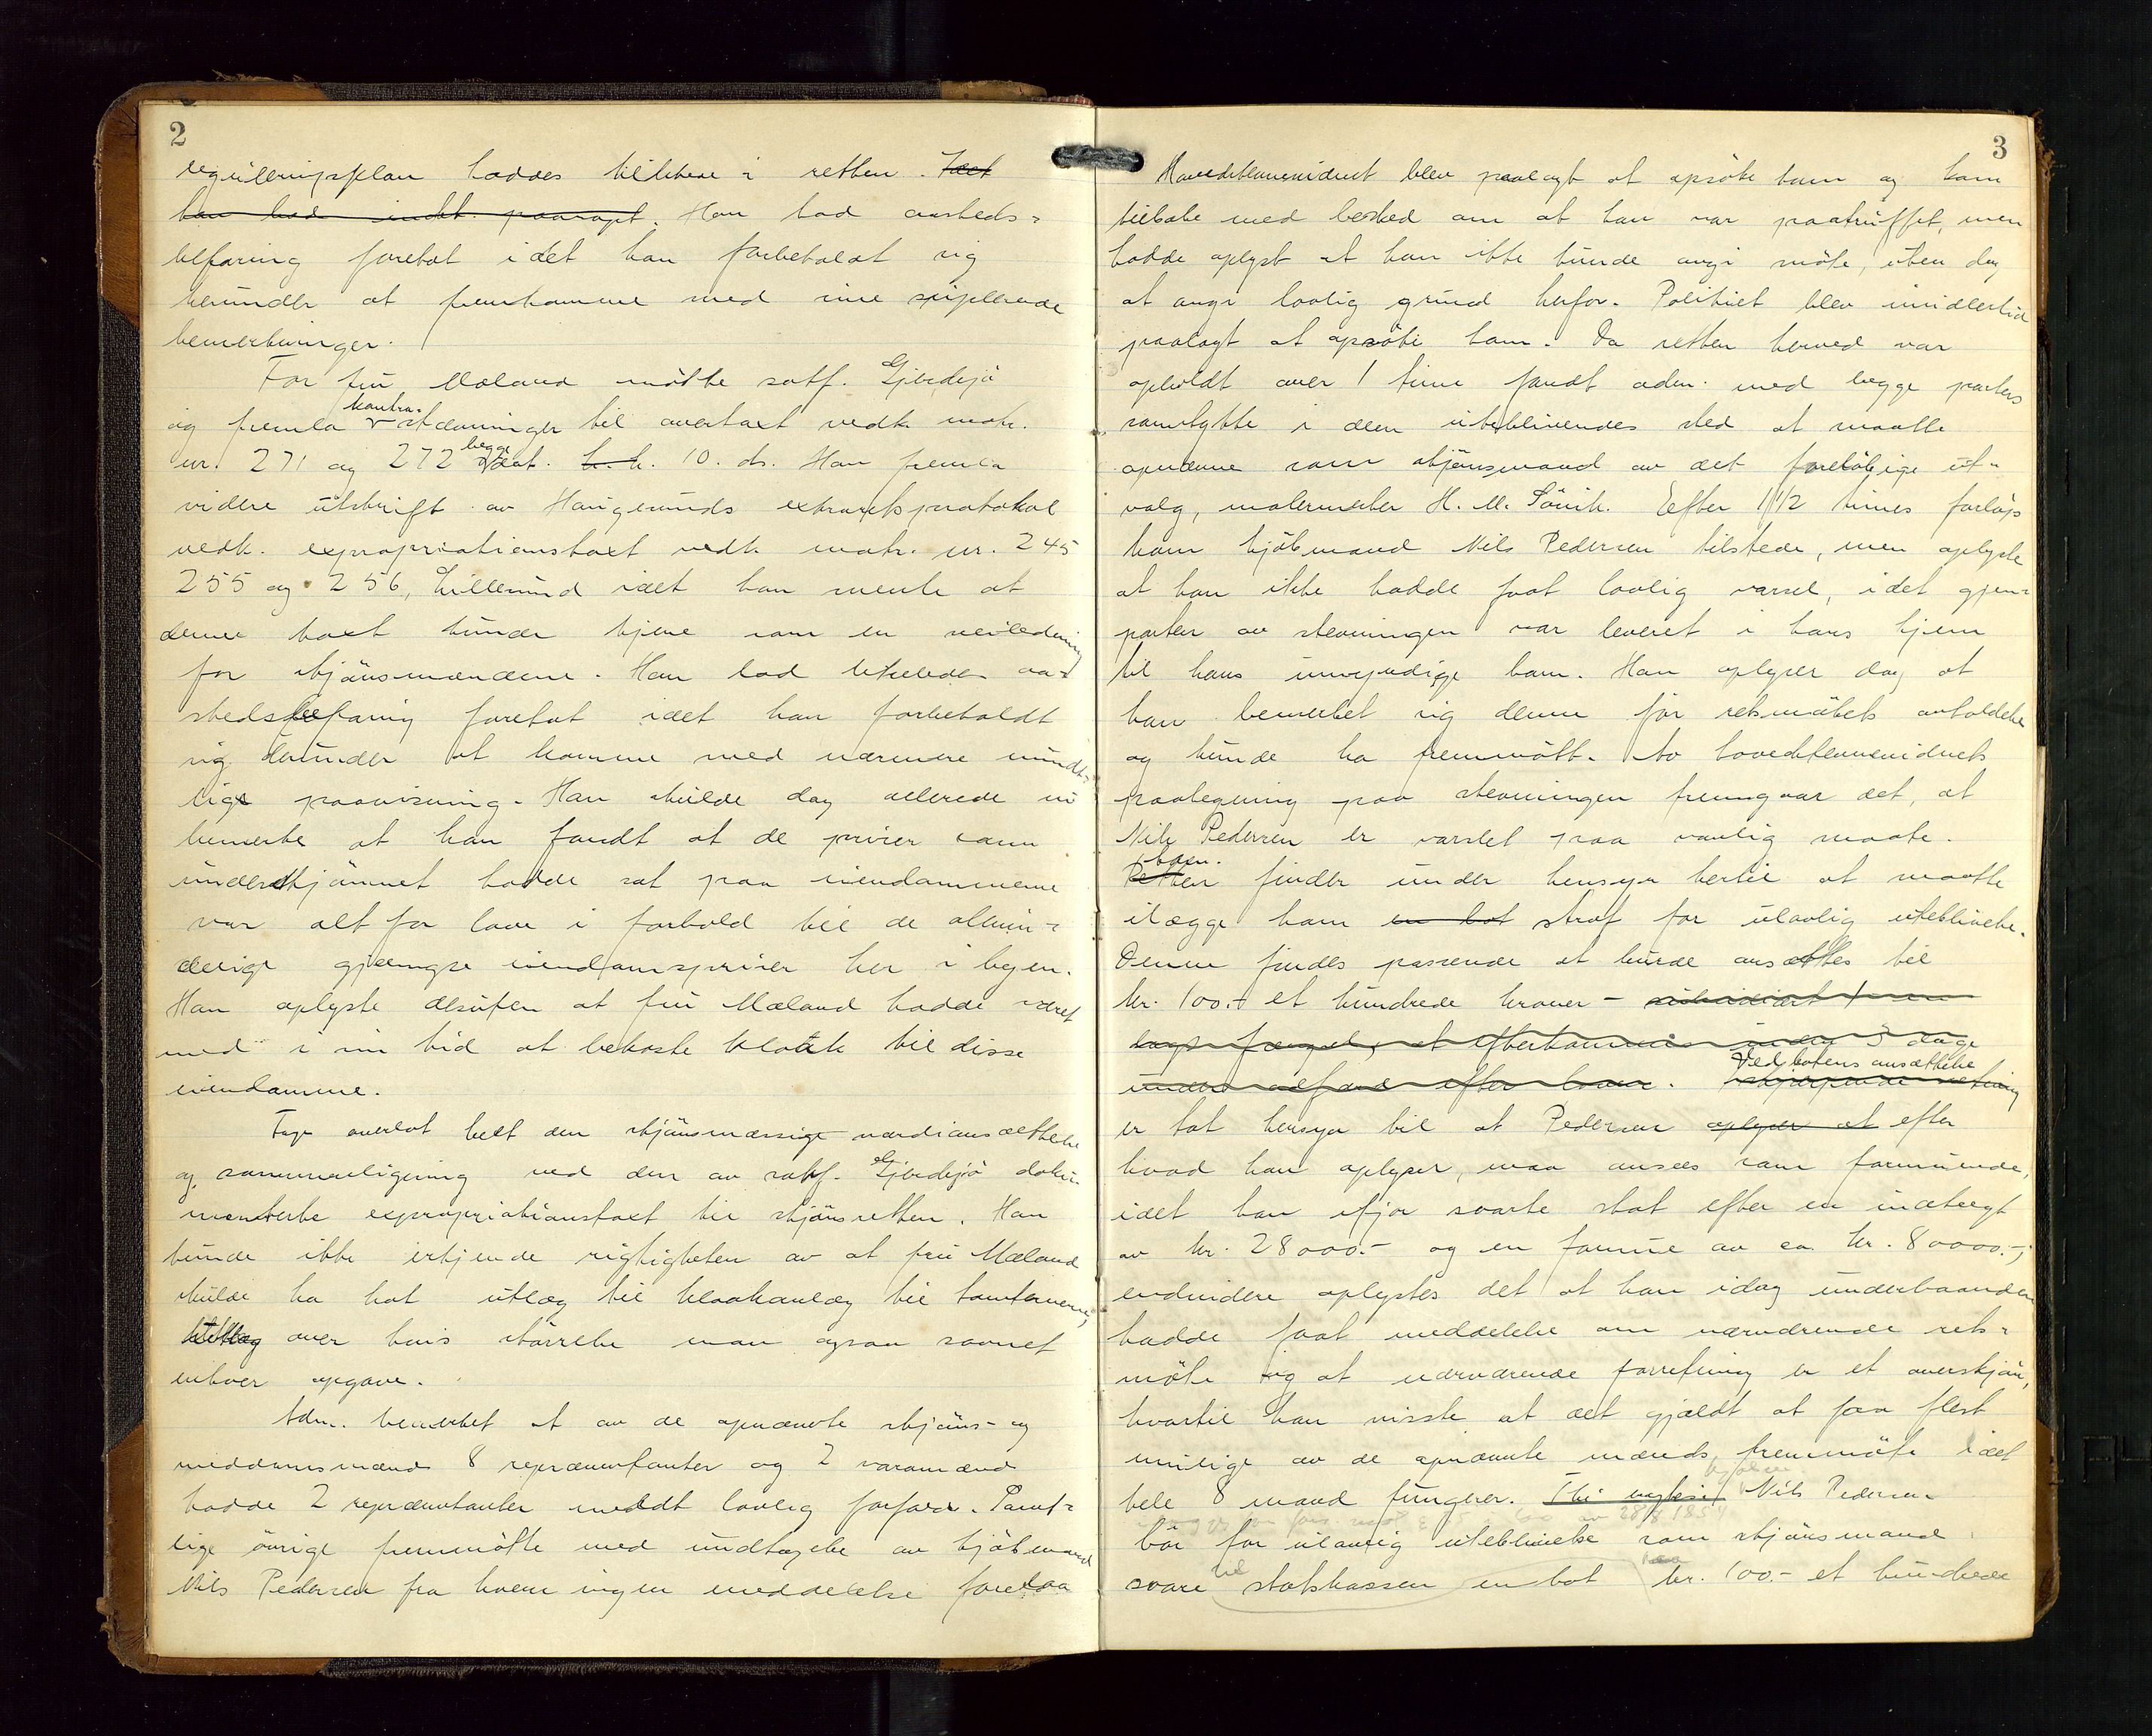 2
reguleringsplan haddes tilstede i retten. Idet
han bad indt. paaropt. Han bad aasteds-
befaring foretat idet han forbeholdt sig
herunder at fremkomme med sine supplerende
bemerkninger.
For fru Mæland møtte sakf. Gjerdesjø
og fremla kontra-stævninger til overtakst vedk. matr.
nr. 271 og 272 begge dat. 10. ds. Han fremla
videre utskrift av Haugesunds extraretsprotokol
vedk. expropriationstakst vedk. matr. nr. 245
255 og 256, Lillesund idet han mente at
denne takst kunde tjene som en veiledning
for skjønsmændene. Han bad likeledes aa-
stedsbefaring foretat idet han forbeholdt
sig derunder at komme med nærmere mundt-
lige paavisning. Han skulde dog allerede nu
bemerke at han fandt at de priser som
underskjønnet hadde sat paa eiendommene
var alt for lave i forhold til de almin-
delige gjængse eiendomspriser her i byen.
Han oplyste desuten at fru Mæland hadde været
med i sin tid at bekoste kloak til disse
eiendomme.
overlot helt den skjønsmæssige værdiansættelse
og sammenligning med den av sakf. Gjerdesjø doku-
menterte expropriationstakst til skjønsretten. Han
kunde ikke erkjende rigtigheten av at fru Mæland
skulde ha hat utlæg til kloakanlæg til tomterne,
over hvis størrelse man ogsaa savnet
enhver opgave.
Adm. bemerket at av de opnævnte skjøns- og
meddomsmænd 8 repræsentanter og 2 varamænd
hadde 2 repræsentanter meldt lovlig forfald. Samt-
lige øvrige fremmøtte med undtagelse av kjøbmand
Nils Pedersen fra hvem ingen meddelelse forelaa
3
Hovedstevnevidnet blev paalagt at opsøke ham og kom
tilbake med besked om at han var paatruffet, men
hadde oplyst at han ikke kunde møte, uten dog
at angi lovlig grund herfor. Politiet blev imidlertid
paalagt at opsøke ham. Da retten herved var
opholdt over 1 time fandt adm. med begge parters
samtykke i den uteblivendes sted at maatte
opnævne som skjønsmand av det foreløbige ut-
valg, malermester H. M. Efter 1 1/2 times forløp
kom kjøbmand Nils Pedersen tilstede, men oplyste
at han ikke hadde faat lovlig varsel, idet gjen-
parten av stevningen var leveret i hans hjem
til hans umyndige barn. Han oplyser dog at
han bemerket sig denne før retsmøtets avholdelse
og kunde ha fremmøtt. Av hovedstevnevidnets
paategning paa stevningen fremgaar det, at
Nils Pedersen er varslet paa vanlig maate.
Retten finder under hensyn hertil at maatte
ilægge ham en bot straf for ulovlig uteblivelse.
Denne findes passende at burde ansættes til
kr. 100.- et hundrede kroner - subsidiært
dags fængsel, at efterkommes inden 3 dage
under adfærd efter loven. Ved botens ansættelse
er tat hensyn til at Pedersen oplyser at efter
hvad han oplyser, maa ansees som formuende,
idet han ifjor svarte skat efter en indtægt
av kr. 28000.- og en formue av ca. kr. 80000.-;
endvidere oplystes det at han idag underhaanden
hadde faat meddelelse om nærværende rets-
møte og at nærværende forretning er et overskjøn,
hvortil han visste at det gjældt at faa flest
mulige av de opnævnte mænds fremmøte idet
hele 8 mand fungerer. Thi Nils Pedersen
bør for ulovlig uteblivelse som skjønsmand
svare til statskassen en bot kr. 100.- et hundrede